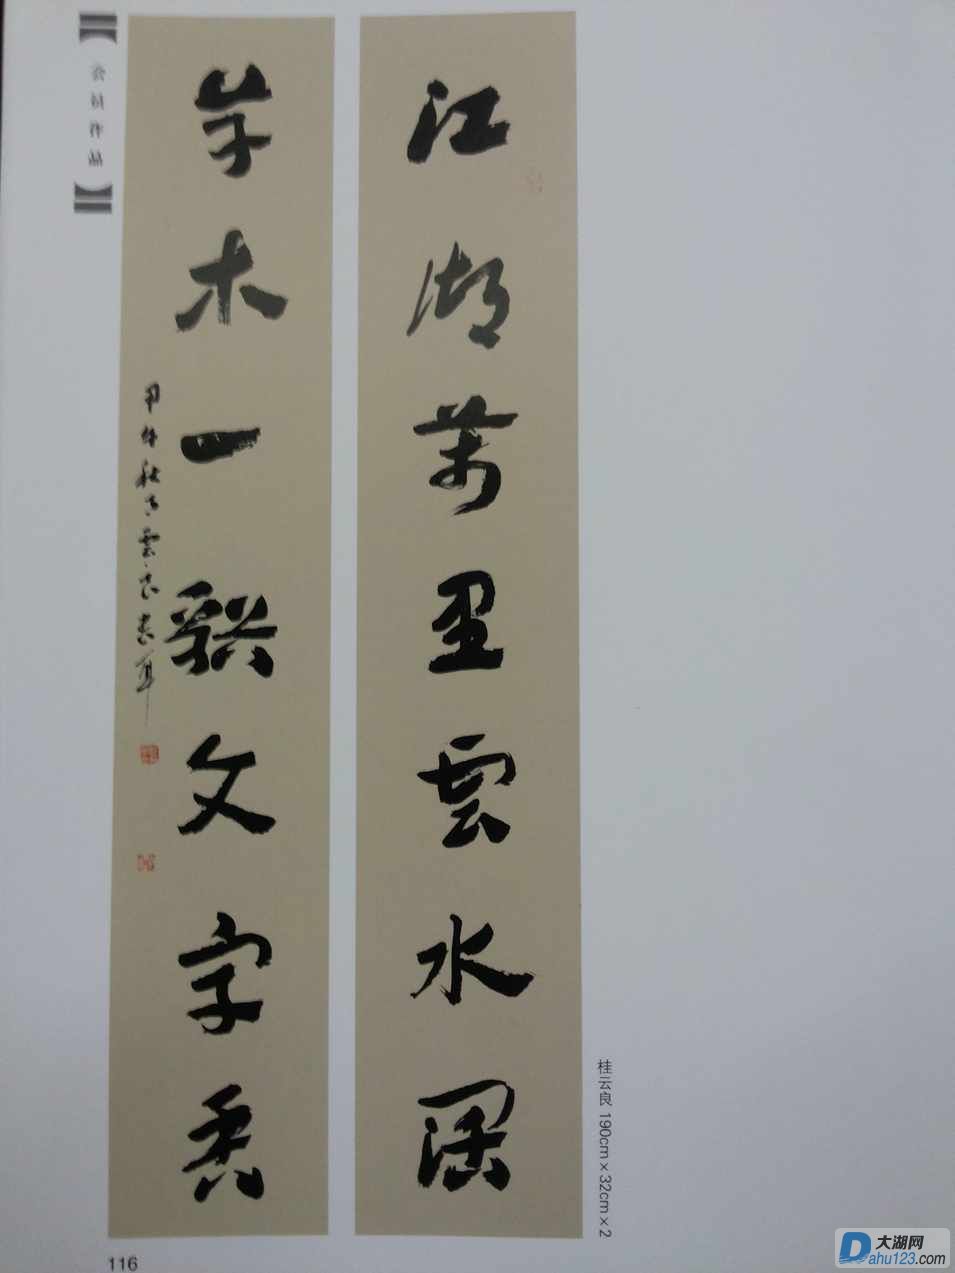 江湖萬里雲水闊
草木一谿文字香
甲午秋月雲良書
会员作品
桂云良 190cm×32cm×2
116
大湖网
Dahu123.com